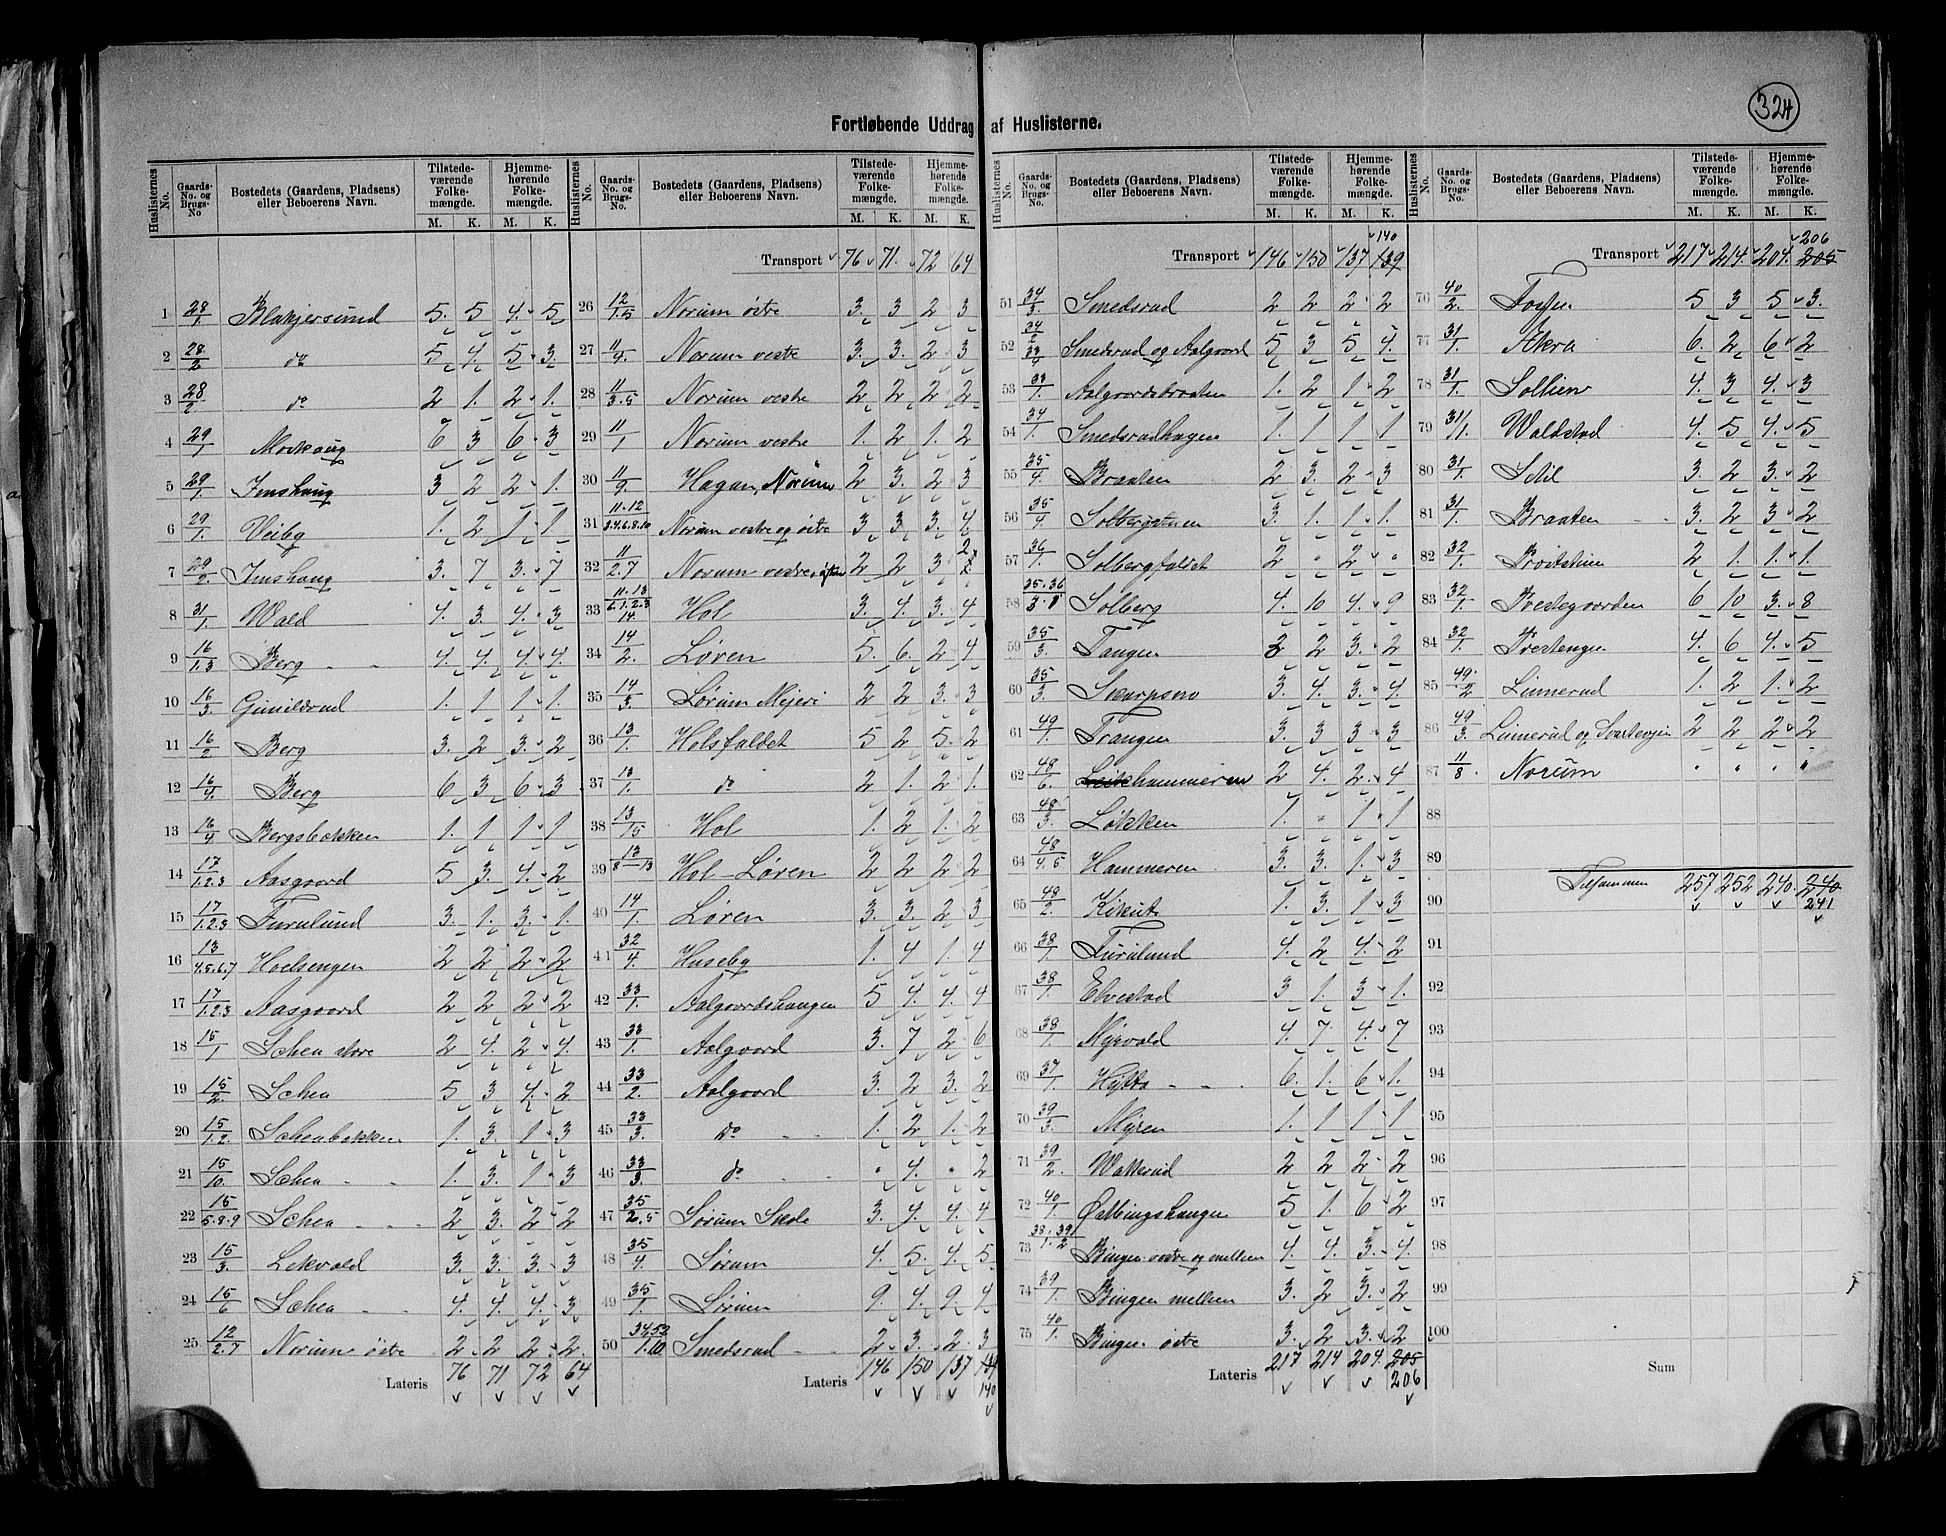 324
Fortløbende Uddrag af Huslisterne.
Huslisternes No. Gaards-No. og Brugs-No Bostedets (Gaardens, Pladsens) eller Beboerens Navn. Tilstede-værende Folke-mængde. M. K. Hjemme-hørende Folke-mængde. M. K.
1 28/1 Blakjersund 5. 5 4. 5
2 28/2 do 5 4. 5 3.
3 28/2. do 2 1. 2 1.
4 29/1 Moskaug 6 3 6 3
5 29/1. Imshaug 3 2 2 1.
6 29/1. Veiby 1. 2 1 1.
7 29/2 Imshaug 3. 7 3. 7
8 31/1. Wald 4. 3. 4. 3
9 16/1.3 Berg 4. 4. 4. 4.
10 16/3. Gunildrud 1. 1 1 1.
11 16/2 Berg 3. 2 3. 2
12 16/4. Berg 6 3 6 3
13 16/4 Bergsbakken 1. 1 1 1
14 17/1.2.3 Aasgaard 5 3. 4. 2
15 17/1.2.3 Furulund 3. 1. 3. 1.
16 13/4.5.6.7 Hoelsengen 2 2 2 2
17 17/1.2.3 Aasgaard 2 2 2 2
18 15/1 Schea store 2 4. 2 4.
19 15/2. Schea 5 3 4. 2
20 15/1.2. Scheabakken 1. 3. 1 3
21 15/10. Schea 1. 3. 1 3
22 15/5.8.9 Schea 2 3. 2 2
23 15/3. Lekvold 3. 3. 3. 3
24 15/6 Schea 4. 4. 4. 3
25 12/2.7 Norum østre 2 2 2 2
Lateris 76 71 72 64
Huslisternes No. Gaards-No. og Brugs-No. Bostedets (Gaardens, Pladsens) eller Beboerens Navn. Tilstede-værende Folke-mængde. M. K. Hjemme-hørende Folke-mængde. M. K.
Transport 76 71. 72 64
26 12/1.5 Norum østre 3. 3 2 3
27 11/4. Norum vestre 3. 3. 2 3
28 11/3.5 Norum vestre 2 2 2 2
29 11/1 Norum vestre 1. 2 1. 2
30 11/9. Hagan, Norum 2 3. 2 3
31 11.12/3.4.6.8.10 Norum vestre og østre 3 3. 3. 4.
32 11/2.7 Norum vestre 2 2 3 2
33 11.13/6.1.2.3 14. Hol 3. 4. 3. 4
34 14/2. Løren 5. 6. 2 4
35 14/3. Lørum Mejeri 2 2 3 3
36 13/1. Holsfaldet 5 2 5. 2
37 13/1. do 2 1. 2 1.
38 13/15 Hol 1. 2 1. 2
39 13/8-13 Hol-Løren 2 2 2 2
40 14/1. Løren 3. 3. 2 3
41 32/4. Huseby 1. 4 1. 4
42 33/1. Aalgaardshaugen 5 4. 4. 4
43 33/1. Aalgaard 3. 7 2 6
44 33/2. Aalgaard 3. 2 3. 2
45 33/3. do 1. 2 1. 2
46 33/3. do " 4. " 2
47 35/2.5 Sørum Skole 3. 4. 4. 4
48 35/4. Sørum 4. 5. 4. 5
49 35/1. Sørum 9. 4. 9 4
50 34.52/1.10 Smedsrud 2 3. 2 3
Lateris 146 150 137 140
Huslisternes No. Gaards-No. og Brugs-No. Bostedets (Gaardens, Pladsens) eller Beboerens Navn. Tilstede-værende Folke-mængde. M. K. Hjemme-hørende Folke-mængde. M. K.
140
Transport 146 150 137 139
51 34/3. Smedsrud 2 2 2 2
52 34/2 33/4 Smedsrud og Aalgaard 5 3 5 4.
53 33/1. Aalgaardsbraaten 1. 2 1 2
54 34/1. Smedsrudhagen 1 1 1 1
55 35/4. Braaten 2 3. 2 3
56 35/4 Solbergstuen 3. 1. 1 1.
57 36/1. Solbergfaldet 2 " 2 "
58 35.36/3.1 Solberg 4. 10 4. 9
59 35/3. Tangen 2 2 3. 2
60 35/3. Skarpsno 3. 4. 3. 4.
61 49/1. Trangen 3. 3 3 3
62 48/6. hammeren 2 4. 2 4
63 48/3. Løkken 1. " 1 1
64 48/4.5 Hammeren 3. 3. 1. 3
65 48/2. Kikut 1. 3. 1 3
66 38/1. Furulund 4. 2 4. 2
67 38/1. Elvestad 3 1. 3 1.
68 38/1. Myrvold 4. 7 4. 7
69 37/1. Hytta 6. 1. 6 1.
70 39/3. Myren 1. 1 1 1
71 39/2. Wakkerud 2 2 2 2
72 40/1. Østbingshaugen 5 1. 6 2
73 38.39/1.2 Bingen vestre og mellem 4. 4. 3. 4.
74 39/1. Bingen mellem 3. 2 3. 2
75 40/1. Bingen østre 3. 2 3. 2
Lateris 217 214 204. 205
206
Huslisternes No. Gaards-No. og Brugs-No. Bostedets (Gaardens, Pladsens) eller Beboerens Navn. Tilstede-værende Folke-mængde. M. K. Hjemme-hørende Folke-mængde. M. K.
206
Transport 217 214. 204. 205
76 40/2. Fossen 5 3 5 3.
77 31/1. Akra 6. 2 6 2
78 31/1. Sollien 4. 3 4. 3
79 31/1. Waldstad 4. 5 4. 5
80 31/1. Stil 3. 2 3. 2
81 31/1. Braaten 3. 2 3 2
82 32/1. 2 1. 1. 1.
83 32/1. Prestegaarden 6 10 3. 8
84 32/1. Prestengen 4. 6 4. 5
85 49/2 Linnerud 1. 2 1. 2
86 49/3. Linnerud og Svartengen 2 2 2 2
87 11/8. Norum " " " "
88
89
Tilsammen 257 252 240. 240
90 241
91
92
93
94
95
96
97
98
99
100
Sum